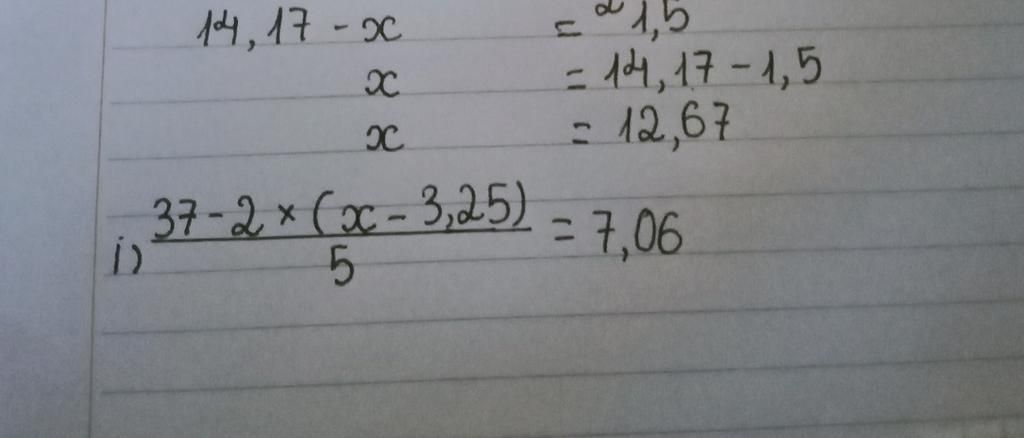 14,17 - x = 1,5
x = 14,17 - 1,5
x = 12,67
i) 37 - 2 × (x - 3,25) / 5 = 7,06